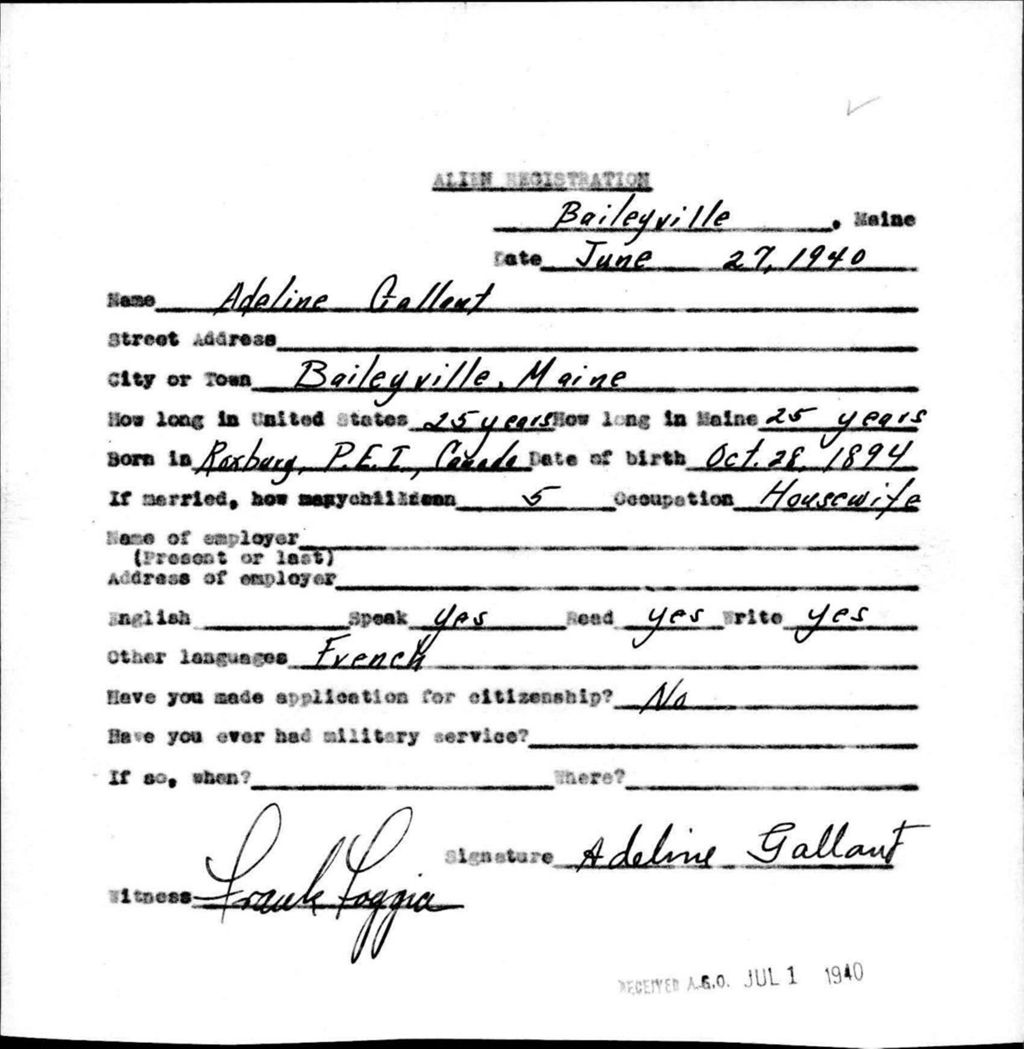 ALIEN REGISTRATION
Baileyville, Maine
Date June 27, 1940
Name Adeline Gallant
Street Address
City or Town Baileyville, Maine
How long in United States 25 years How long in Maine 25 years
Born in Roxbury, P.E.I., Canada Date of birth Oct. 28, 1894
If married, how many children 5 Occupation Housewife
Name of employer
(Present or last)
Address of employer
English Speak yes Read yes Write yes
Other languages French
Have you made application for citizenship? No
Have you ever had military service?
If so, when? Where?
Signature Adeline Gallant
Witness Frank Foggia
RECEIVED A.G.O. JUL 1 1940